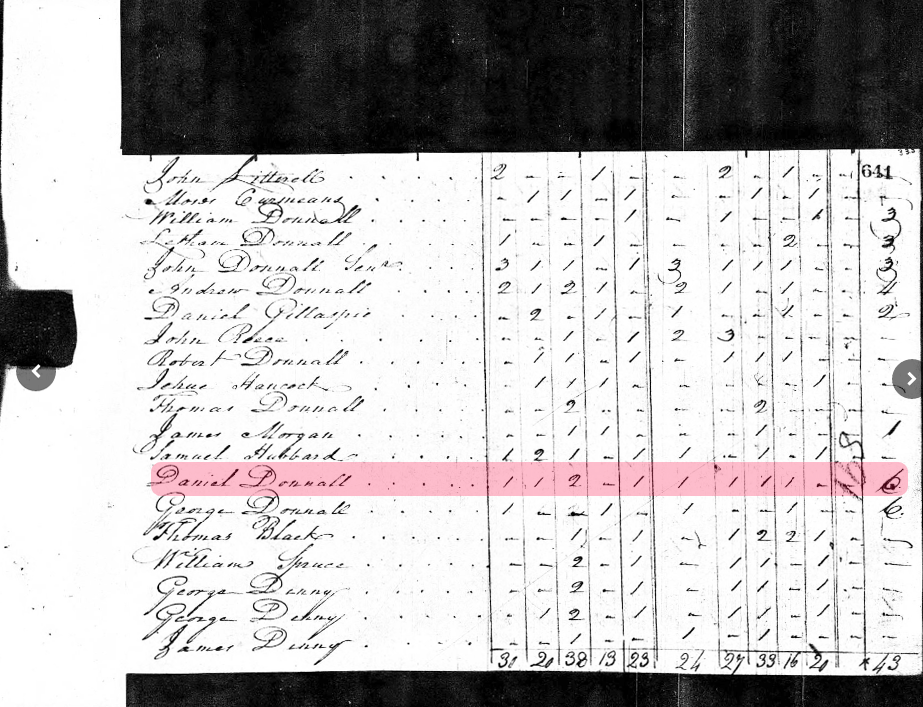 333
John Litterell 2 - - 1 - - 2 - 1 - - 641
Moses Curmeans - 1 1 1 - 1 - - 1 - 1 - -
William Donnall - - - - 1 - 1 - - 1 - 3
Letham Donnall 1 - - 1 - - - - 2 - - 3
John Donnall Senr 3 1 1 - 1 3 1 1 1 - - 3
Andrew Donnall 2 1 2 1 - 2 1 - 1 - - 4
Daniel Gillaspie - 2 - 1 - 1 - - 1 - - 2
John Reece - - 1 - 1 2 3 - - - - -
Robert Donnall - 1 1 - 1 - 1 1 1 - - -
Hancock - 1 1 1 - - - - 1 - -
Thomas Donnall - - 2 - - - - 2 - - -
James Morgan - - 1 1 - - - 1 - - - 1
Samuel Hubbard 1 2 1 - 1 1 - 1 - 1 - -
Daniel Donnall 1 1 2 - 1 1 1 1 1 - - 6
George Donnall 1 - - 1 - 1 - - 1 - - 6
Thomas Black - - 1 - 1 - 1 2 2 1 - -
William Spruce - - 2 - 1 - 1 1 - 1 - -
George Denny - - 2 - - - 1 1 - 1 - -
George Denny - 1 2 - - - 1 1 - 1 - -
James Denny - - 1 - - 1 - 1 - - - -
20 38 13 23 24 27 33 16 43